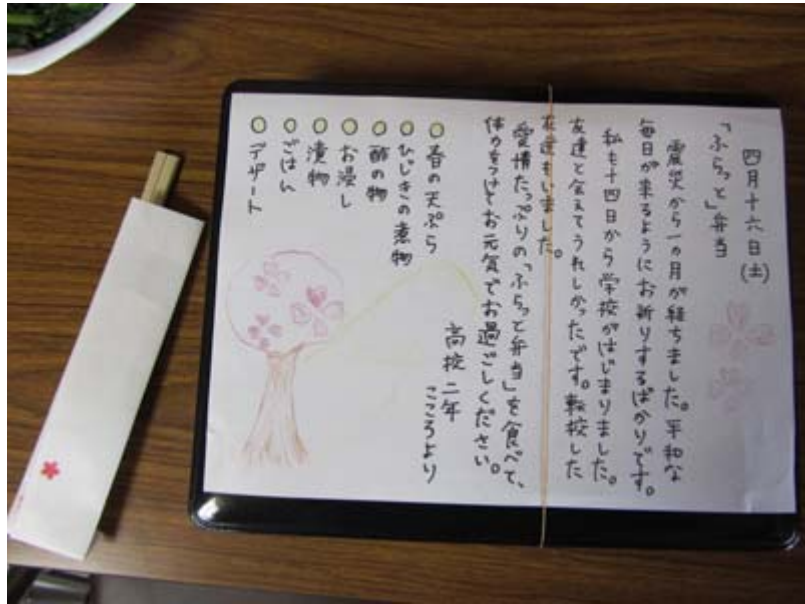 四月十六日(土)
「ふらっと」弁当
震災から一ヵ月が経ちました。平和な
毎日が来るようにお祈りするばかりです。
私も十四日から学校がはじまりました。
友達と会えてうれしかったです。転校した
友達もいました。
愛情たっぷりの「ふらっと弁当」を食べて、
体力をつけてお元気でお過ごしください。
高校二年
こころより
春の天ぷら
ひじきの煮物
酢の物
お浸し
漬物
ごはん
デザート